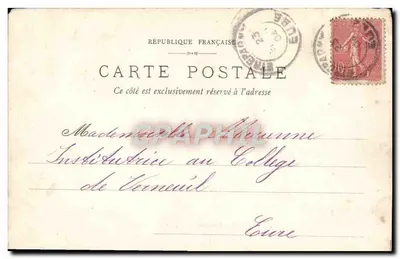 RÉPUBLIQUE FRANÇAISE
CARTE POSTALE
Ce côté est exclusivement réservé à l'adresse
EURE
23
04
Mademoiselle
Institutrice au Collège
de Verneuil
Eure